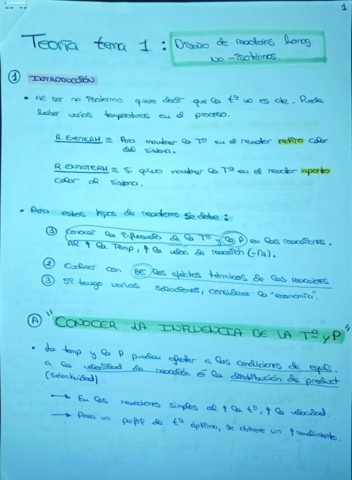 1
Teoría tema 1: Diseño de reactores homog
No-isotermos.
① INTRODUCCIÓN
• Al ser no isotermo quiere decir que la tª no es cte. Puede
haber varias temperaturas en el proceso.
R. EXOTERM ≡ Para mantener la Tª en el reactor retiro calor
del sistema.
R. ENDOTERM ≡ Si quiero mantener la Tª en el reactor aporto
calor al sistema.
• Para estos tipos de reactores se debe:
① Conocer la influencia de la Tª y la P en las reacciones.
Al ↑ la Temp, ↑ la veloc de reacción (-rA).
② Evaluar con BE los efectos térmicos de las reacciones
③ Si tengo varias soluciones, considerar la "economía".
Ⓐ "CONOCER LA INFLUENCIA DE LA Tª y P"
• La temp y la P pueden afectar a las condiciones de equil.
a la velocidad de reacción o la distribución de product
(selectividad)
→ En las reacciones simples al ↑ la tª, ↑ la velocidad.
→ Para un perfil de tª óptimo, se obtiene un ↑ rendimiento.